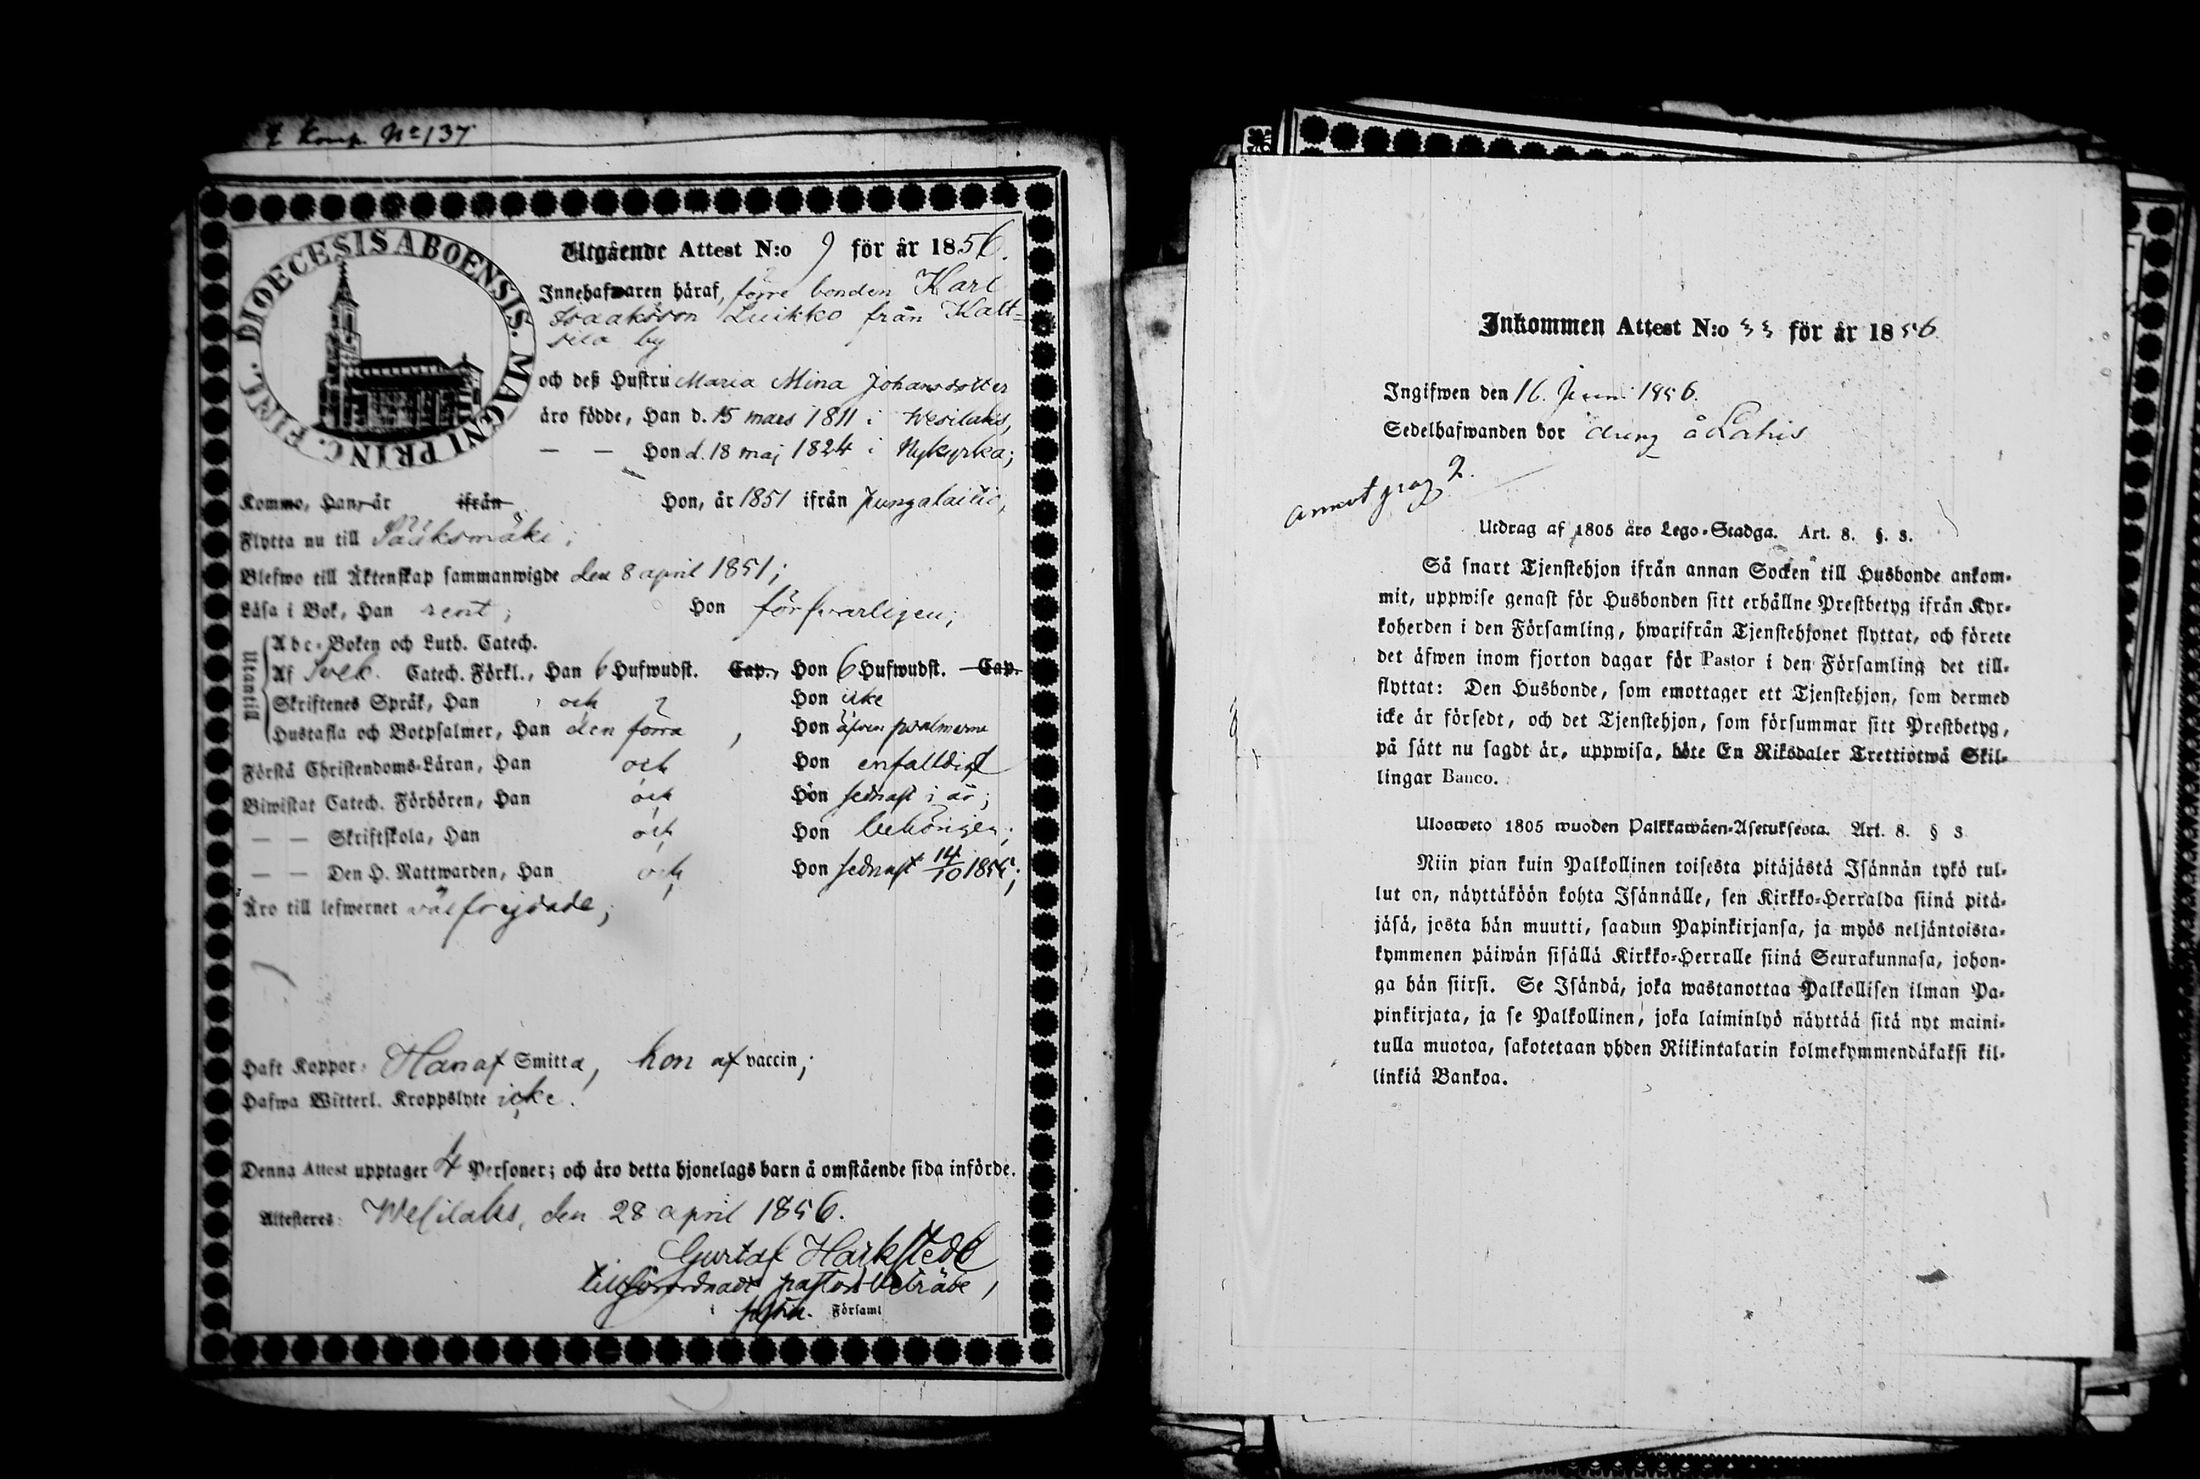 Komp. No 137
DIOECESIS ABOENSIS. MAGNI PRINC. FINL.
Utgående Attest N:o 9 för år 1856.
Innehafwaren häraf, förre bonden Karl
Isaaksson Luikko från Katt-
sila by
och deß Hustru Maria Mina Johansdotter
äro födde, Han d. 15 mars 1811 i Wesilaks,
— — Hon d. 18 maj 1824 i Nykyrka;
Kommo, Han, år ifrån Hon, år 1851 ifrån Pungalaitio,
Flytta nu till Sääksmäki;
Blefwo till Äktenskap sammanwigde den 8 april 1851;
Läsa i Bok, Han rent; Hon försvarligen;
Utantill
Abc-Boken och Luth. Catech.
Af Sveb. Catech. Förkl., Han 6 Hufwudst. Cap., Hon 6 Hufwudst. Cap.
Skriftenes Språk, Han och Hon icke
Hustafla och Botpsalmer, Han den förra, Hon äfven psalmerna
Förstå Christendoms-Läran, Han och Hon enfalldigt
Biwistat Catech. Förhören, Han och Hon sednast i år;
— — Skriftskola, Han och Hon behörigen;
— — Den H. Nattwarden, Han och Hon sednast 14/10 1855;
Äro till lefwernet välfrejdade;
Haft Koppor: Han af Smitta, hon af vaccin;
Hafwa Witterl. Kroppslyte icke.
Denna Attest upptager 4 Personer; och äro detta hjonelags barn å omstående sida införde.
Attesteres: Wesilaks, den 28 april 1856.
Gustaf Harkstedt
tillförordnadt pastors biträde,
i Församl
Inkommen Attest N:o 33 för år 1856
Ingifwen den 16. Juni 1856.
Sedelhafwanden bor å Lahis
annot pag 2.
Utdrag af 1805 års Lego-Stadga. Art. 8. §. 3.
Så snart Tjenstehjon ifrån annan Socken till Husbonde ankom-
mit, uppwise genast för Husbonden sitt erhållne Prestbetyg ifrån Kyr-
koherden i den Församling, hwarifrån Tjenstehjonet flyttat, och förete
det äfwen inom fjorton dagar för Pastor i den Församling det till-
flyttat: Den Husbonde, som emottager ett Tjenstehjon, som dermed
icke är försedt, och det Tjenstehjon, som försummar sitt Prestbetyg,
på sätt nu sagdt är, uppwisa, böte En Riksdaler Trettiotwå Skil-
lingar Banco.
Ulosweto 1805 wuoden Palkkawäen-Asetuksesta. Art. 8. § 3
Niin pian kuin Palkollinen toisesta pitäjästä Isännän tykö tul-
lut on, näyttäköön kohta Isännälle, sen Kirkko-Herralda siinä pitä-
jäsä, josta hän muutti, saadun Papinkirjansa, ja myös neljäntoista-
kymmenen päiwän sisällä Kirkko-Herralle siinä Seurakunnasa, johon-
ga hän siirsi. Se Isändä, joka wastanottaa Palkollisen ilman Pa-
pinkirjata, ja se Palkollinen, joka laiminlyö näyttää sitä nyt maini-
tulla muotoa, sakotetaan yhden Riikintalarin kolmekymmendäkaksi kil-
linkiä Bankoa.